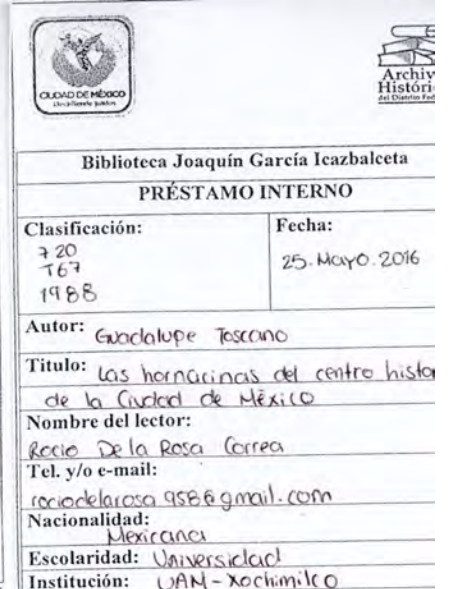 CIUDAD DE MÉXICO
Decidiendo juntos
Archiv
Históri
del Distrito Fed
Biblioteca Joaquín García Icazbalceta
PRÉSTAMO INTERNO
Clasificación:
720
T67
1988
Fecha:
25. Mayo. 2016
Autor: Guadalupe Toscano
Titulo: Las hornacinas del centro histor
de la Ciudad de México
Nombre del lector:
Rocio De la Rosa Correa
Tel. y/o e-mail:
rociodelarosa958@gmail.com
Nacionalidad:
Mexicana
Escolaridad: Universidad
Institución: UAM-Xochimilco